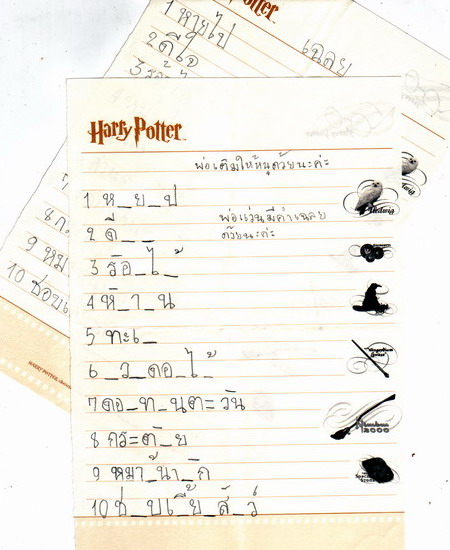 1 หายไป
2 ดีใจ
เฉลย
Harry Potter
พ่อเติมให้หนูด้วยนะค่ะ
1 ห_ย_ป
2 ดี_ _
พ่อแว่นมีคำเฉลย
ด้วยนะค่ะ
3 ร้อ_ไ_้
4 ห้_า_น
5 ทะเ_
6 _ว_ดอ_ไ_้
7 ดอ_ท_นตะวัน
8 กระต่_ย
9 หมาน้า_ัก
10 ช_บเ_ี้ย_สั_ว์
8 กระ
9 หมา
10 ชอบเ
Hedwig
Nimbus
2000